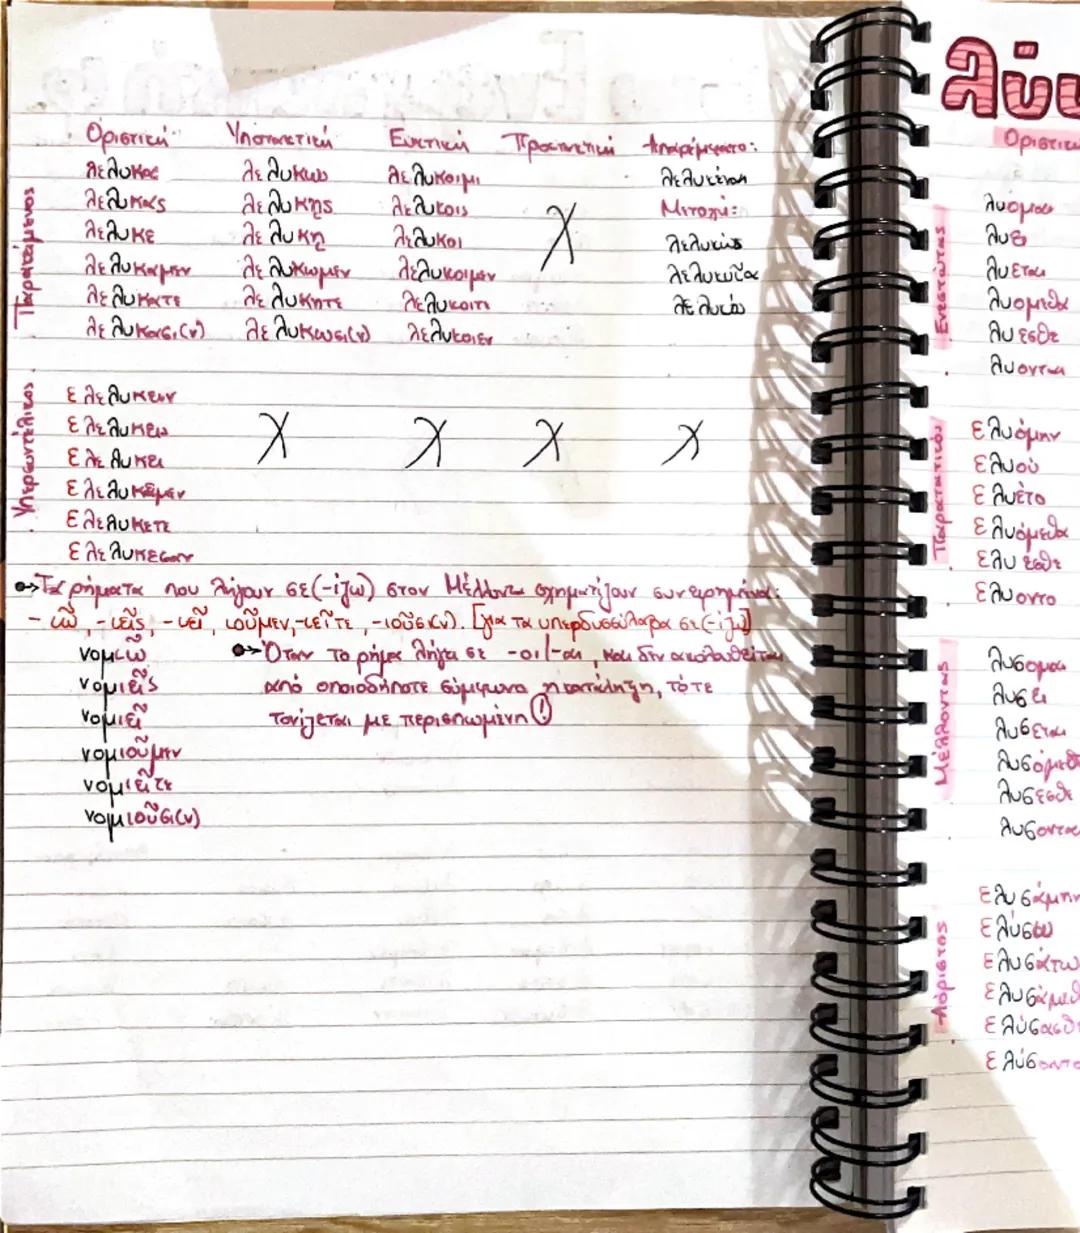 Οριστική Υποτακτική Ευκτική Προστακτική Απαρέμφατο:
Παρακείμενος
λελυκα λελυκω λελυκοιμι λελυκέναι
λελυκας λελυκῃς λελυκοις Μετοχή:
λελυκε λελυκῃ λελυκοι Χ λελυκώς
λελυκαμεν λελυκωμεν λελυκοιμεν λελυκυῖα
λελυκατε λελυκητε λελυκοιτε λελυκός
λελυκασι(ν) λελυκωσι(ν) λελυκοιεν
Υπερσυντέλικος
ελελυκειν
ελελυκεις Χ Χ Χ Χ
ελελυκει
ελελυκεμεν
ελελυκετε
ελελυκεσαν
Τα ρήματα που λήγουν σε (-ίζω) στον Μέλλοντα σχηματίζουν συνειρημένα:
-ιῶ, -ιεῖς, -ιεῖ, ιοῦμεν, -ιεῖτε, -ιοῦσι(ν). [για τα υπερδυσσύλαβα σε (-ίζω)]
νομιῶ Όταν το ρήμα λήγει σε -οι/-αι, και δεν ακολουθείται
νομιεῖς από οποιοδήποτε σύμφωνο η κατάληξη, τότε
νομιεῖ τονίζεται με περισπωμένη!
νομιοῦμεν
νομιεῖτε
νομιοῦσι(ν)
λύω
Οριστικ
Ενεστώτας
λυομαι
λυει
λυεται
λυομεθα
λυεσθε
λυονται
Παρατατικού
ελυόμην
ελυού
ελυέτο
ελυόμεθα
ελυεσθε
ελυοντο
Μέλλοντας
λυσομαι
λυσει
λυσεται
λυσόμεθ
λυσεσθε
λυσονται
Αόριστος
ελυσάμην
ελύσω
ελυσάτω
ελυσάμεθ
ελύσασθ
ελύσαντο